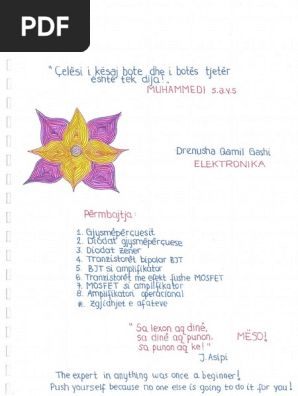 PDF
"Çelësi i kësaj bote dhe i botës tjetër
është tek dija!"
MUHAMMEDI s.a.v.s
Drenusha Gamil Gashi
ELEKTRONIKA
Përmbajtja:
1. Gjysmëpërçuesit
2. Diodat gjysmëpërçuese
3. Diodat zener
4. Tranzistorët bipolar BJT
5. BJT si amplifikator
6. Tranzistorët me efekt fushe MOSFET
7. MOSFET si amplifikator
8. Amplifikatori operacional
*. Zgjidhjet e afateve
"Sa lexon aq dinë,
sa dinë aq punon,
sa punon aq ke!"
MËSO!
J. Asipi
The expert in anything was once a beginner!
Push yourself because no one else is going to do it for you!